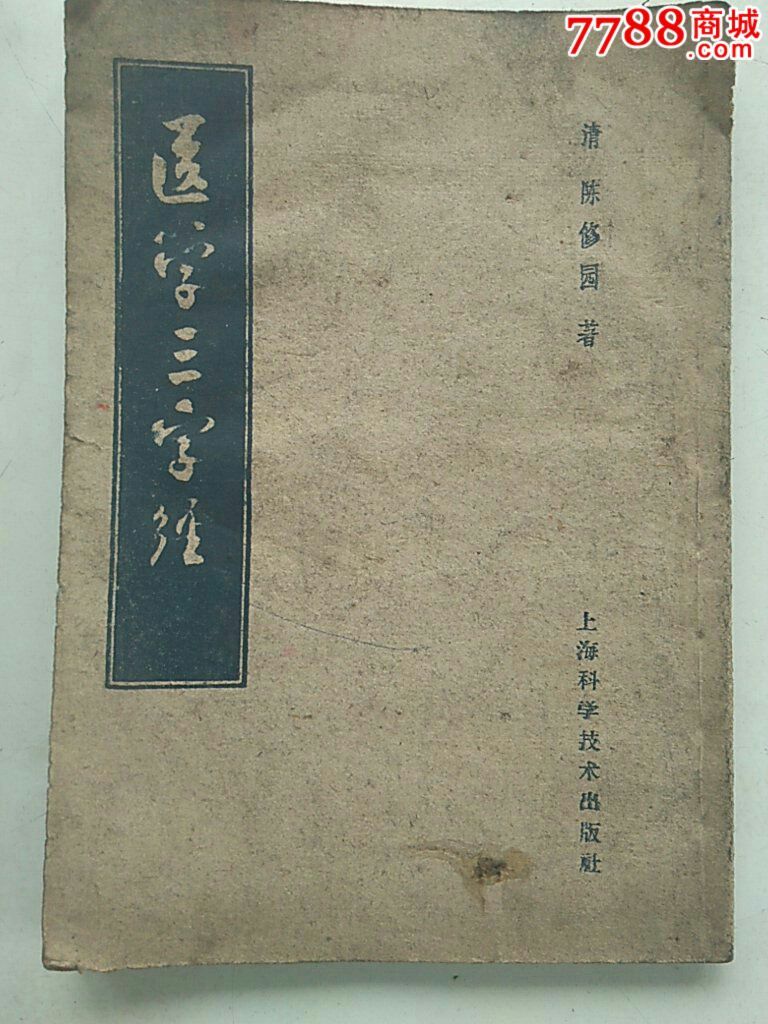 7788商城
.com
清 陈修园 著
医学三字经
上海科学技术出版社